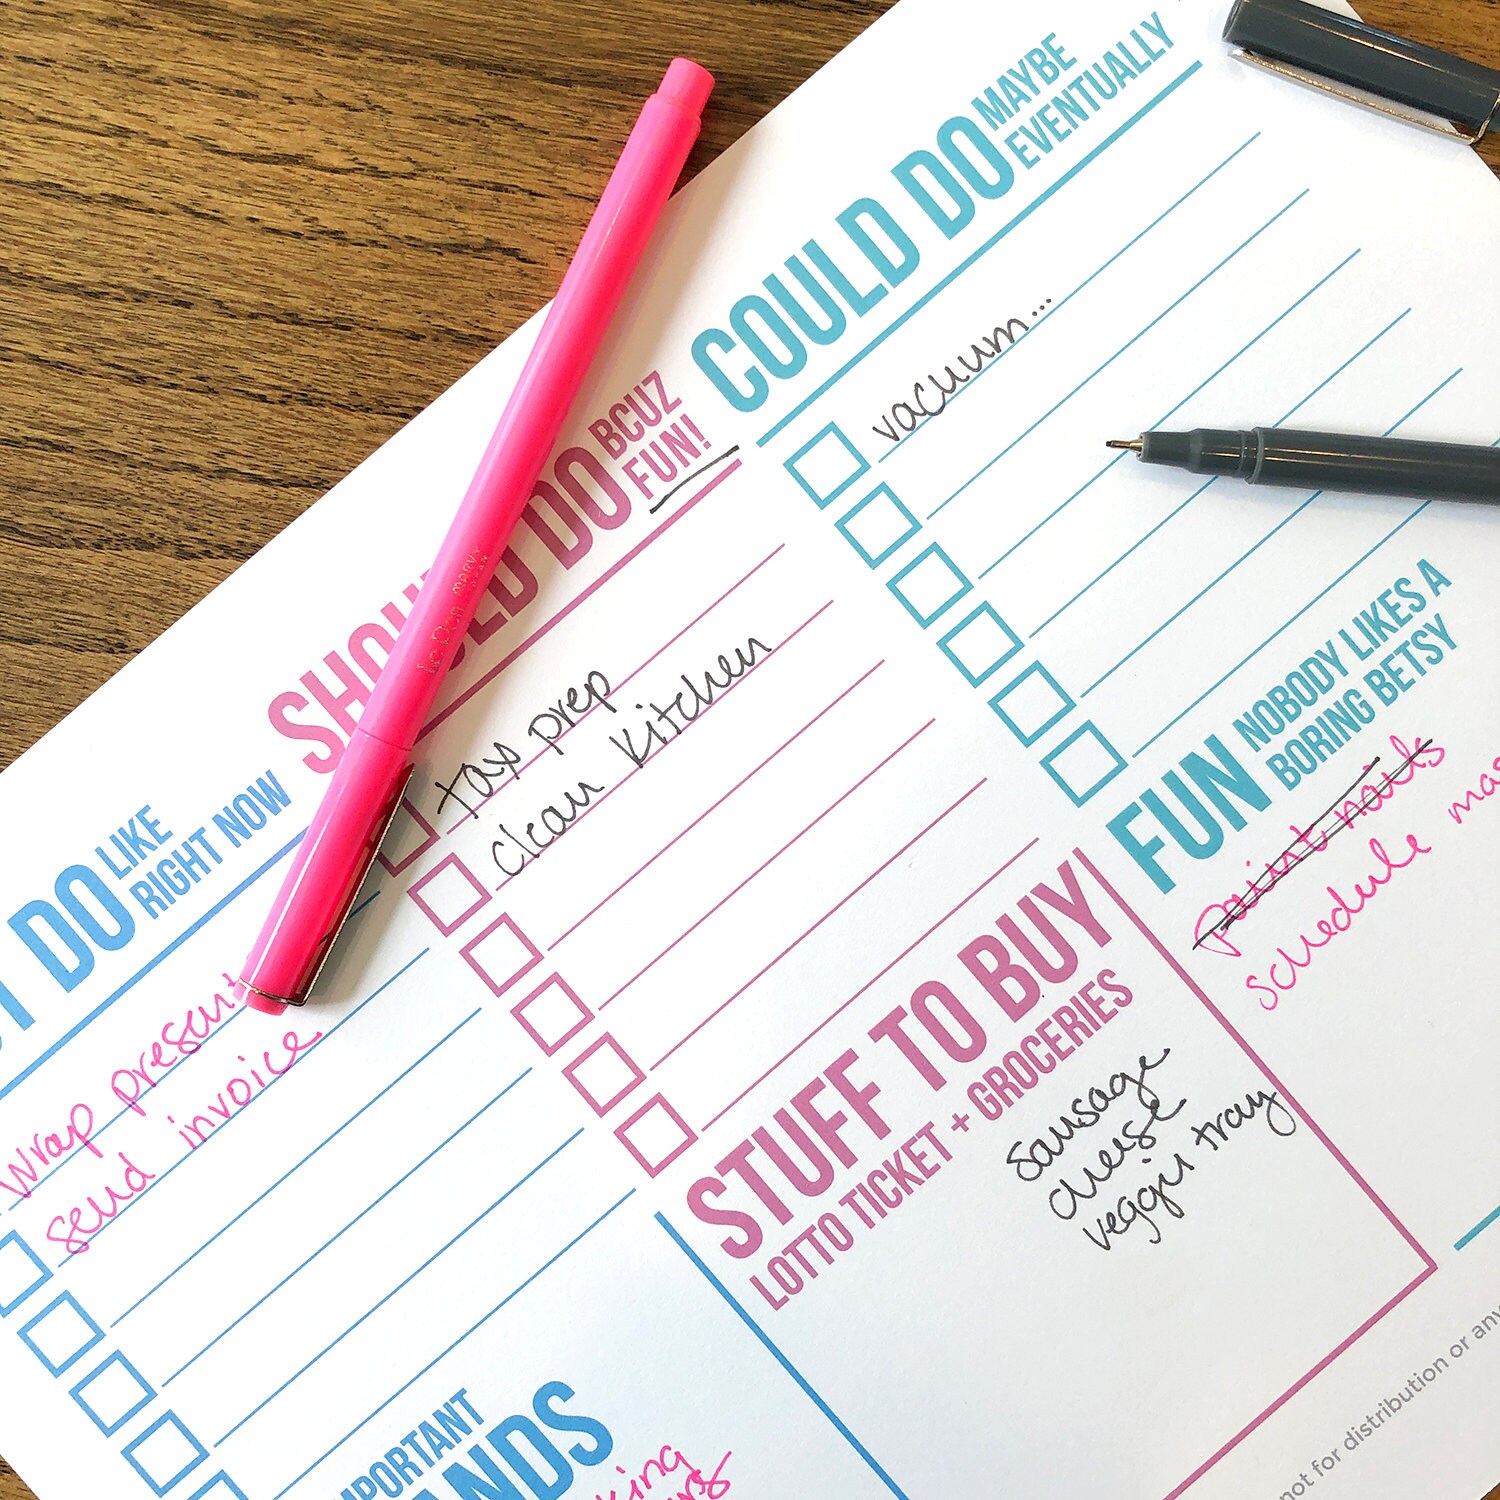 DO LIKE
RIGHT NOW
wrap present
send invoice
DO BCUZ
FUN!
tax prep
clean kitchen
COULD DO MAYBE
EVENTUALLY
vacuum...
FUN NOBODY LIKES A
BORING BETSY
paint nails
schedule
STUFF TO BUY
LOTTO TICKET + GROCERIES
sausage
cheese
veggie tray
Le Pen
not for distribution or any